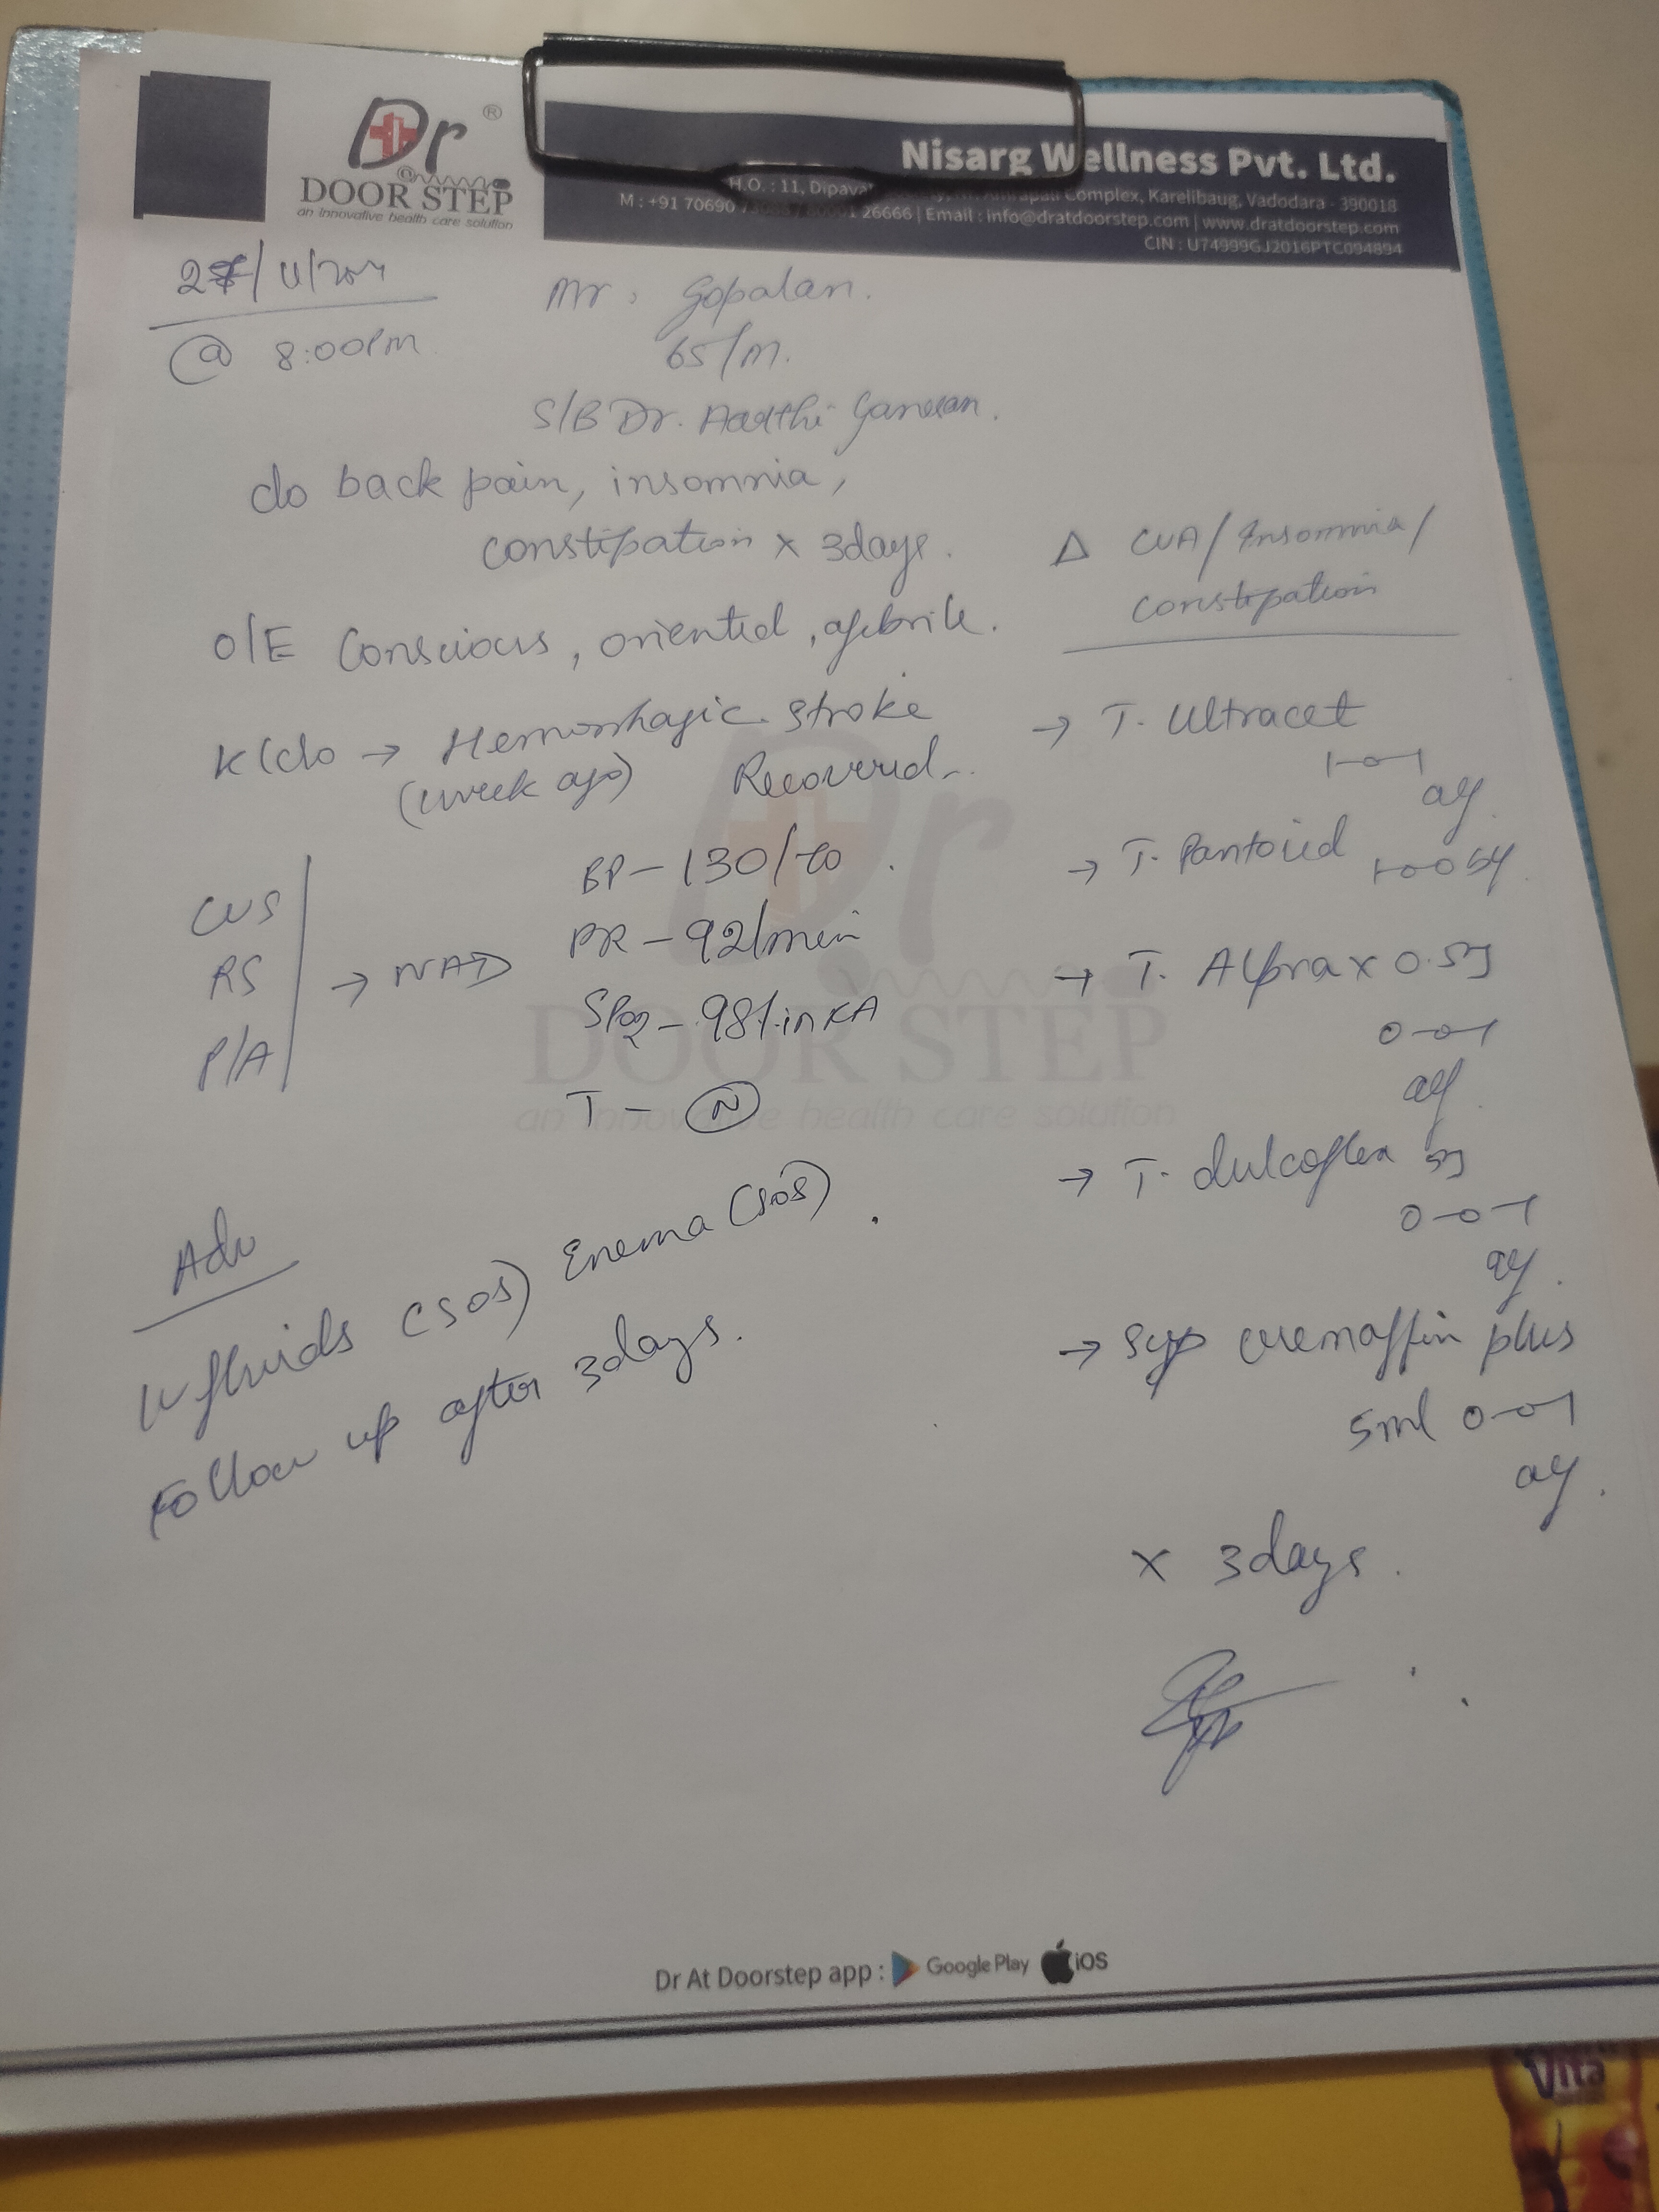 Dr ®
@
DOOR STEP
an innovative health care solution
Nisarg Wellness Pvt. Ltd.
H.O. : 11, Dipava Complex, Karelibaug, Vadodara - 390018
M : +91 70690 26666 | Email : info@dratdoorstep.com | www.dratdoorstep.com
CIN : U74999GJ2016PTC094894
@ 8:00PM
Mr. Gopalan.
65/M.
S/B Dr. Aarthi Ganesan.
c/o back pain, insomnia,
constipation x 3days.
O/E Conscious, oriented, afebrile.
K/c/o → Hemorrhagic stroke
(1week ago) Recovered.
CVS
RS → NAD
P/A
BP - 130/80.
PR - 92/min
SPO2 - 98% in RA
T - N
Adv
IV fluids (SOS) Enema (SOS).
Follow up after 3days.
Δ CVA/Insomnia/
constipation
→ T. Ultracet
1-0-1
→ T. Pantocid 1-0-0
→ T. Alprax 0.5
0-0-1
→ T. dulcoflex 5
0-0-1
→ Syp cremaffin plus
5ml 0-0-1
x 3days.
Dr
DOOR STEP
an innovative health care solution
Dr At Doorstep app : Google Play iOS
Vita